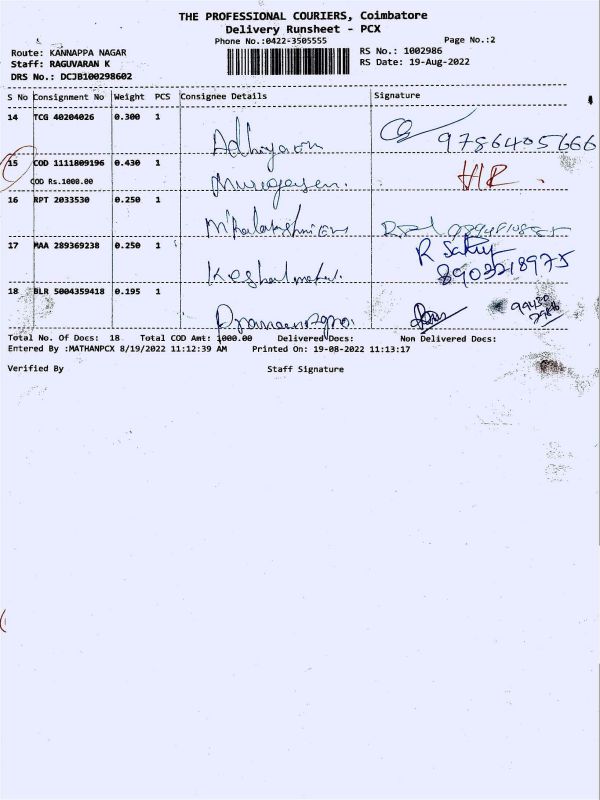 THE PROFESSIONAL COURIERS, Coimbatore
Delivery Runsheet - PCX
Phone No.:0422-3505555
Page No.:2
Route: KANNAPPA NAGAR
RS No.: 1002986
Staff: RAGUVARAN K
RS Date: 19-Aug-2022
DRS No.: DCJB100298602
S No Consignment No Weight PCS Consignee Details Signature
14 TCG 40204026 0.300 1
9786405666
15 COD 1111809196 0.430 1
COD Rs.1000.00
Murugesen.
16 RPT 2033530 0.250 1
17 MAA 289369238 0.250 1
R
8903218975
18 BLR 5004359418 0.195 1
Total No. Of Docs: 18 Total COD Amt: 1000.00 Delivered Docs: Non Delivered Docs:
Entered By :MATHANPCX 8/19/2022 11:12:39 AM Printed On: 19-08-2022 11:13:17
Verified By Staff Signature